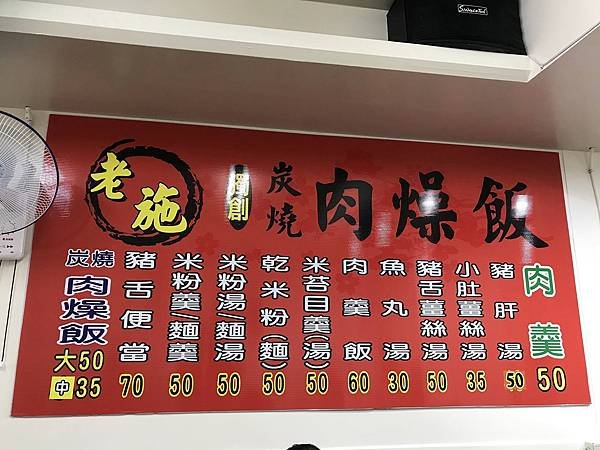 老施
獨創
炭燒
肉燥飯
炭燒肉燥飯 大50 中35
豬舌便當 70
米粉羹/麵羹 50
米粉湯/麵湯 50
乾米粉(麵) 50
米苔目羹(湯) 50
肉羹飯 60
魚丸湯 30
豬舌薑絲湯 50
小肚薑絲湯 35
豬肝湯 50
肉羹 50